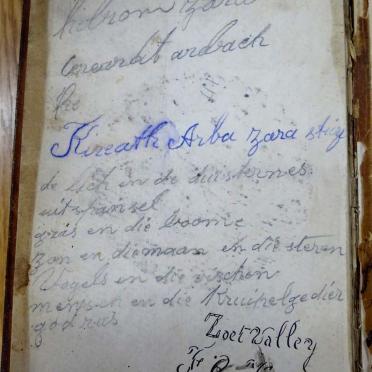 hebron zara
ararat arbach
he
Kireath Arba zara
de lich en de duisternes
uitspansel
gras en die boome
zon en die maan en die steren
Vogels en die vischen
mensen en die Kruipelgedier
god rus
Zoet Valley